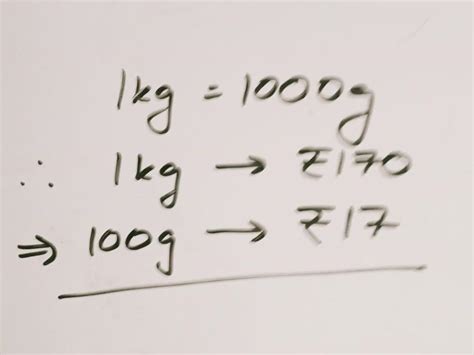 1kg = 1000g
∴ 1kg → ₹170
⇒ 100g → ₹17